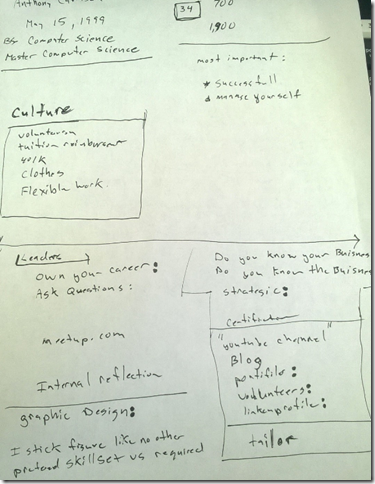 Anthony
May 15, 1999
BS: Computer Science
Master Computer Science
34
700
1,900
most important:
* Successfull
* manage yourself
Culture
voluntarism
tuition reimbursment
401k
Clothes
Flexible work
Leaders
Own your career:
Ask Questions:
meetup.com
Internal reflection
graphic Design:
I stick figure like no other
pretend skillset vs required
Do you know your Buisnes
Do you know the Buisnes
strategic:
Certification
"youtube channel"
Blog
portifilo:
volunteers:
linkenprofile:
tailor